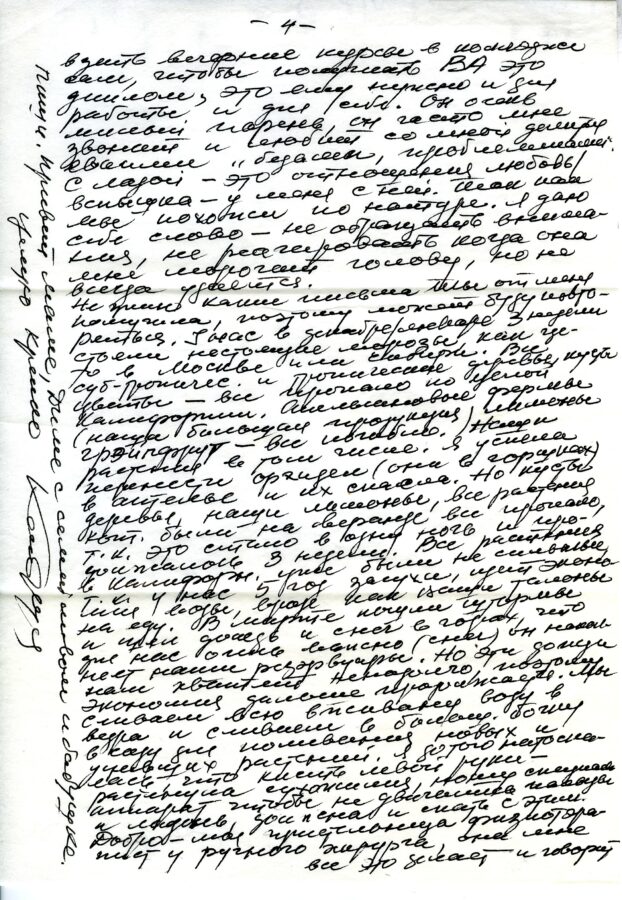 - 4 -
взять вечерние курсы в колледже
там, чтобы получить ВА это
диплом, это ему нужно и для
работы и для себя. Он очень
милый парень, он часто мне
звонит и любит со мной делиться
своими "бедами, проблемами.
С Ладой - это отношения любовь/
вспышка - у меня с ней. Так как
мы похожи по натуре. Я даю
себе слово - не обращать внима-
ния, не реагировать когда она
мне морочит голову, но не
всегда удается.
Не знаю какие письма ты от меня
получила, поэтому может буду повто-
ряться. У нас в декабре-январе 3 недели
стояли настоящие морозы как где-
то в Москве или Сибири. Все
субтропичес. и тропические деревья, кусты
цветы - все пропало по целой
Калифорнии. Апельсиновые фермы
(наша большая продукция) лимоны
грэйпфрут - все погибло. Наши
растения в том числе. Я успела
перенести орхидеи (они в горшках)
в ателье и их спасла. Но кусты
деревья, наши лимоны, все растения
кот. были на веранде все пропало,
т.к. это стало в одну ночь и про-
должалось 3 недели. Все растения
в Калифорн. уже были не сильные,
т.к. у нас 5 год засухи, идет эконо-
мия воды, вроде как ваши талоны
на еду. В марте пошли штормы
и шел дождь и снег в горах, что
для нас очень важно (снег) он напол-
няет наши резервуары. Но эти дожди
нам хватит ненадолго, поэтому
экономия дальше продолжается. Мы
сливаем всю воду в
ведра и сливаем в больш. бочку
в саду для поливания новых и
уцелевших растений. Я до того натаска-
лась что кисть левой руки -
растянула сухожилия, ношу специальн.
аппарат чтобы не двигались пальцы
и ладонь, должна и спать с этим.
Добро - моя приятельница физиотера-
пист у ручного хирурга, она мне
все это делает и говорит
пиши. Привет маме, Диме с семьей и бабушке.
целую крепко